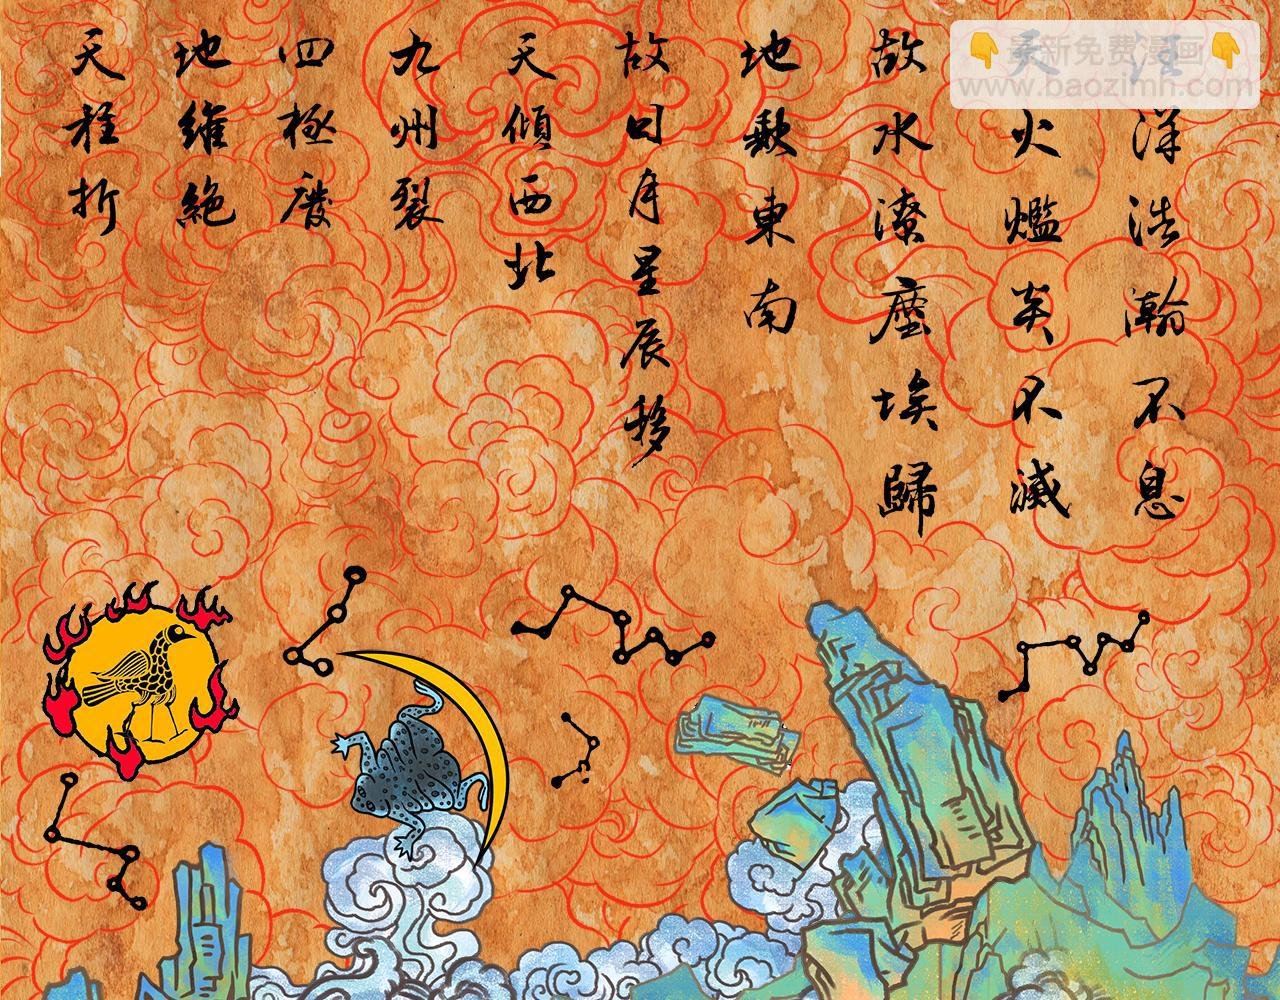 天柱折
地維絕
四極廢
九州裂
天傾西北
故日月星辰移
地歉東南
故水潦塵埃歸
天火爁炎不滅
汪洋浩瀚不息
👇最新免费漫画👇
www.baozimh.com